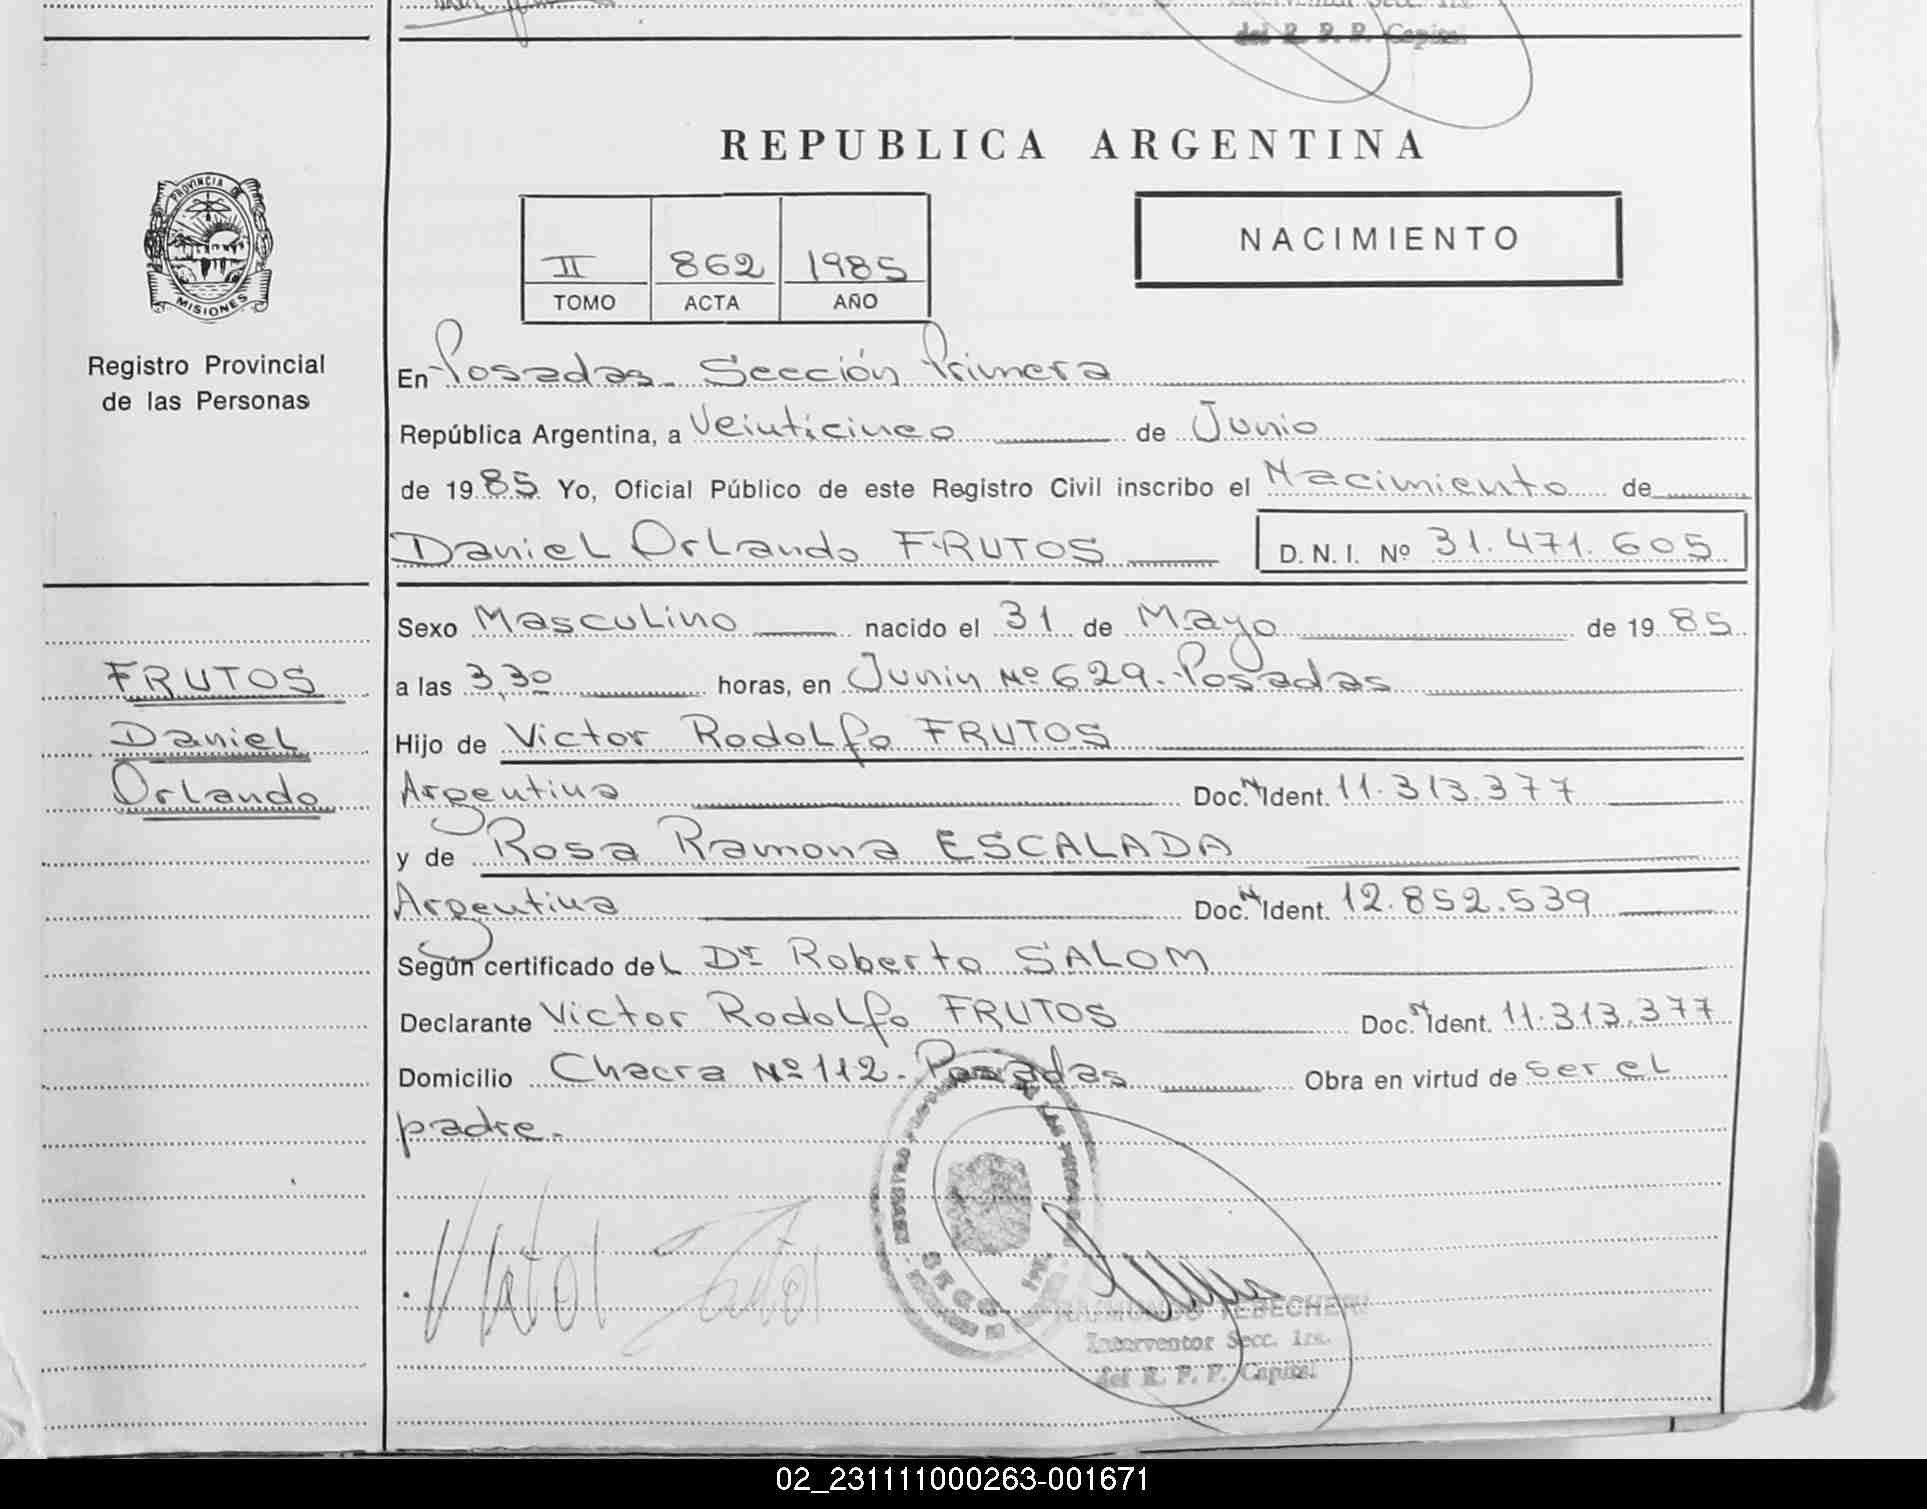 del R. P. P. Capital
REPUBLICA ARGENTINA
PROVINCIA DE
MISIONES
Registro Provincial
de las Personas
II 862 1985
TOMO ACTA AÑO
NACIMIENTO
En Posadas Sección Primera
República Argentina, a Veinticinco de Junio
de 1985 Yo, Oficial Público de este Registro Civil inscribo el Nacimiento de
Daniel Orlando FRUTOS D. N. I. Nº 31.471.605
Sexo Masculino nacido el 31 de Mayo de 1985
FRUTOS
Daniel
Orlando
a las 3,30 horas, en Junin Nº 629. Posadas
Hijo de Victor Rodolfo FRUTOS
Argentina Doc. N Ident. 11.313.377
y de Rosa Ramona ESCALADA
Argentina Doc. N Ident. 12.852.539
Según certificado del Dr Roberto SALOM
Declarante Victor Rodolfo FRUTOS Doc. N Ident. 11.313.377
Domicilio Chacra Nº 112. Posadas Obra en virtud de ser el
padre.
RAIMUNDO YEBECHERI
Interventor Secc. 1ra.
del R. P. P. Capital
02_231111000263-001671